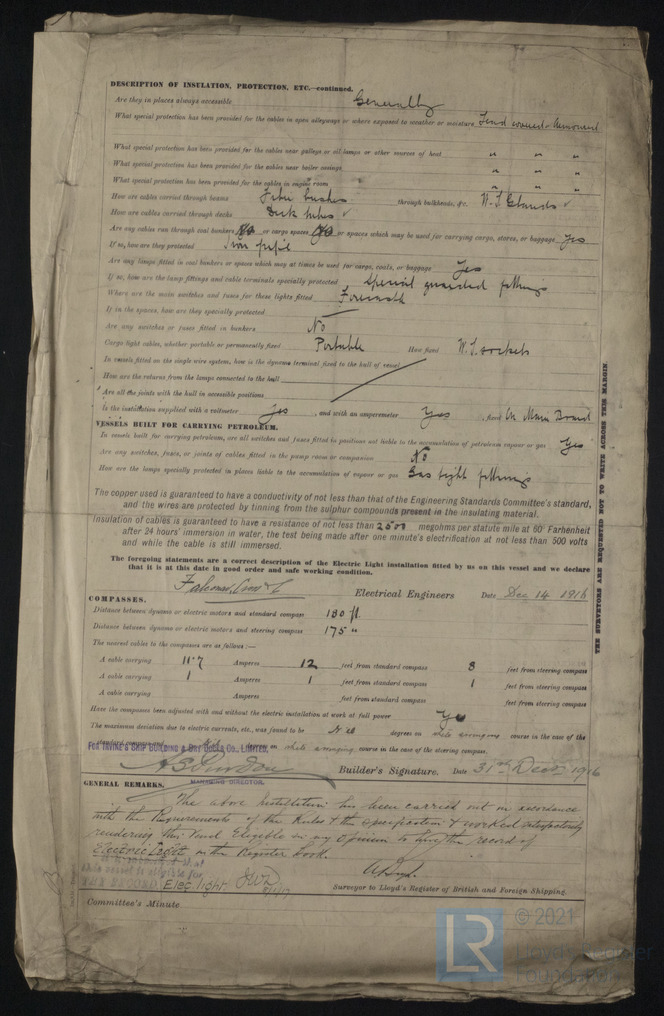 DESCRIPTION OF INSULATION, PROTECTION, ETC.—continued.
Are they in places always accessible Generally
What special protection has been provided for the cables in open alleyways or where exposed to weather or moisture Lead covered & Armoured
What special protection has been provided for the cables near galleys or oil lamps or other sources of heat " " "
What special protection has been provided for the cables near boiler casings " " "
What special protection has been provided for the cables in engine room " " "
How are cables carried through beams Fibre bushes through bulkheads, &c. W.T. Glands ✓
How are cables carried through decks Deck tubes ✓
Are any cables run through coal bunkers No or cargo spaces or spaces which may be used for carrying cargo, stores, or baggage Yes
If so, how are they protected Iron pipe
Are any lamps fitted in coal bunkers or spaces which may at times be used for cargo, coals, or baggage Yes
If so, how are the lamp fittings and cable terminals specially protected Special guarded fittings
Where are the main switches and fuses for these lights fitted
If in the spaces, how are they specially protected —
Are any switches or fuses fitted in bunkers No
Cargo light cables, whether portable or permanently fixed Portable How fixed W.T. sockets
In vessels fitted on the single wire system, how is the dynamo terminal fixed to the hull of vessel
How are the returns from the lamps connected to the hull
Are all the joints with the hull in accessible positions
Is the installation supplied with a voltmeter Yes, and with an amperemeter Yes, fixed On Main Board
VESSELS BUILT FOR CARRYING PETROLEUM.
In vessels built for carrying petroleum, are all switches and fuses fitted in positions not liable to the accumulation of petroleum vapour or gas Yes
Are any switches, fuses, or joints of cables fitted in the pump room or companion No
How are the lamps specially protected in places liable to the accumulation of vapour or gas Gas tight fittings
The copper used is guaranteed to have a conductivity of not less than that of the Engineering Standards Committee's standard,
and the wires are protected by tinning from the sulphur compounds present in the insulating material.
Insulation of cables is guaranteed to have a resistance of not less than 2500 megohms per statute mile at 60° Farhenheit
after 24 hours' immersion in water, the test being made after one minute's electrification at not less than 500 volts
and while the cable is still immersed.
The foregoing statements are a correct description of the Electric Light installation fitted by us on this vessel and we declare
that it is at this date in good order and safe working condition.
Electrical Engineers Date Dec 14 1916
COMPASSES.
Distance between dynamo or electric motors and standard compass 180 ft.
Distance between dynamo or electric motors and steering compass 175 "
The nearest cables to the compasses are as follows:—
A cable carrying 11.7 Amperes 12 feet from standard compass 8 feet from steering compass
A cable carrying 1 Amperes 1 feet from standard compass 1 feet from steering compass
A cable carrying Amperes feet from standard compass feet from steering compass
Have the compasses been adjusted with and without the electric installation at work at full power Yes
The maximum deviation due to electric currents, etc., was found to be Nil degrees on course in the case of the
standard compass Nil on course in the case of the steering compass.
FOR IRVINE'S SHIP BUILDING & DRY DOCKS CO., LIMITED,
Builder's Signature. Date 31st Decr 1916
MANAGING DIRECTOR.
GENERAL REMARKS.
The above Installation has been carried out in accordance
with the Requirements of the Rules & the specification & worked satisfactorily
rendering this Vessel Eligible in my Opinion to have the record of
Electric Light in the Register Book.
this vessel is eligible for
THE RECORD Elec. light.
Surveyor to Lloyd's Register of British and Foreign Shipping.
Committee's Minute
THE SURVEYORS ARE REQUESTED NOT TO WRITE ACROSS THIS MARGIN
LR
© 2021
Lloyd's Register
Foundation